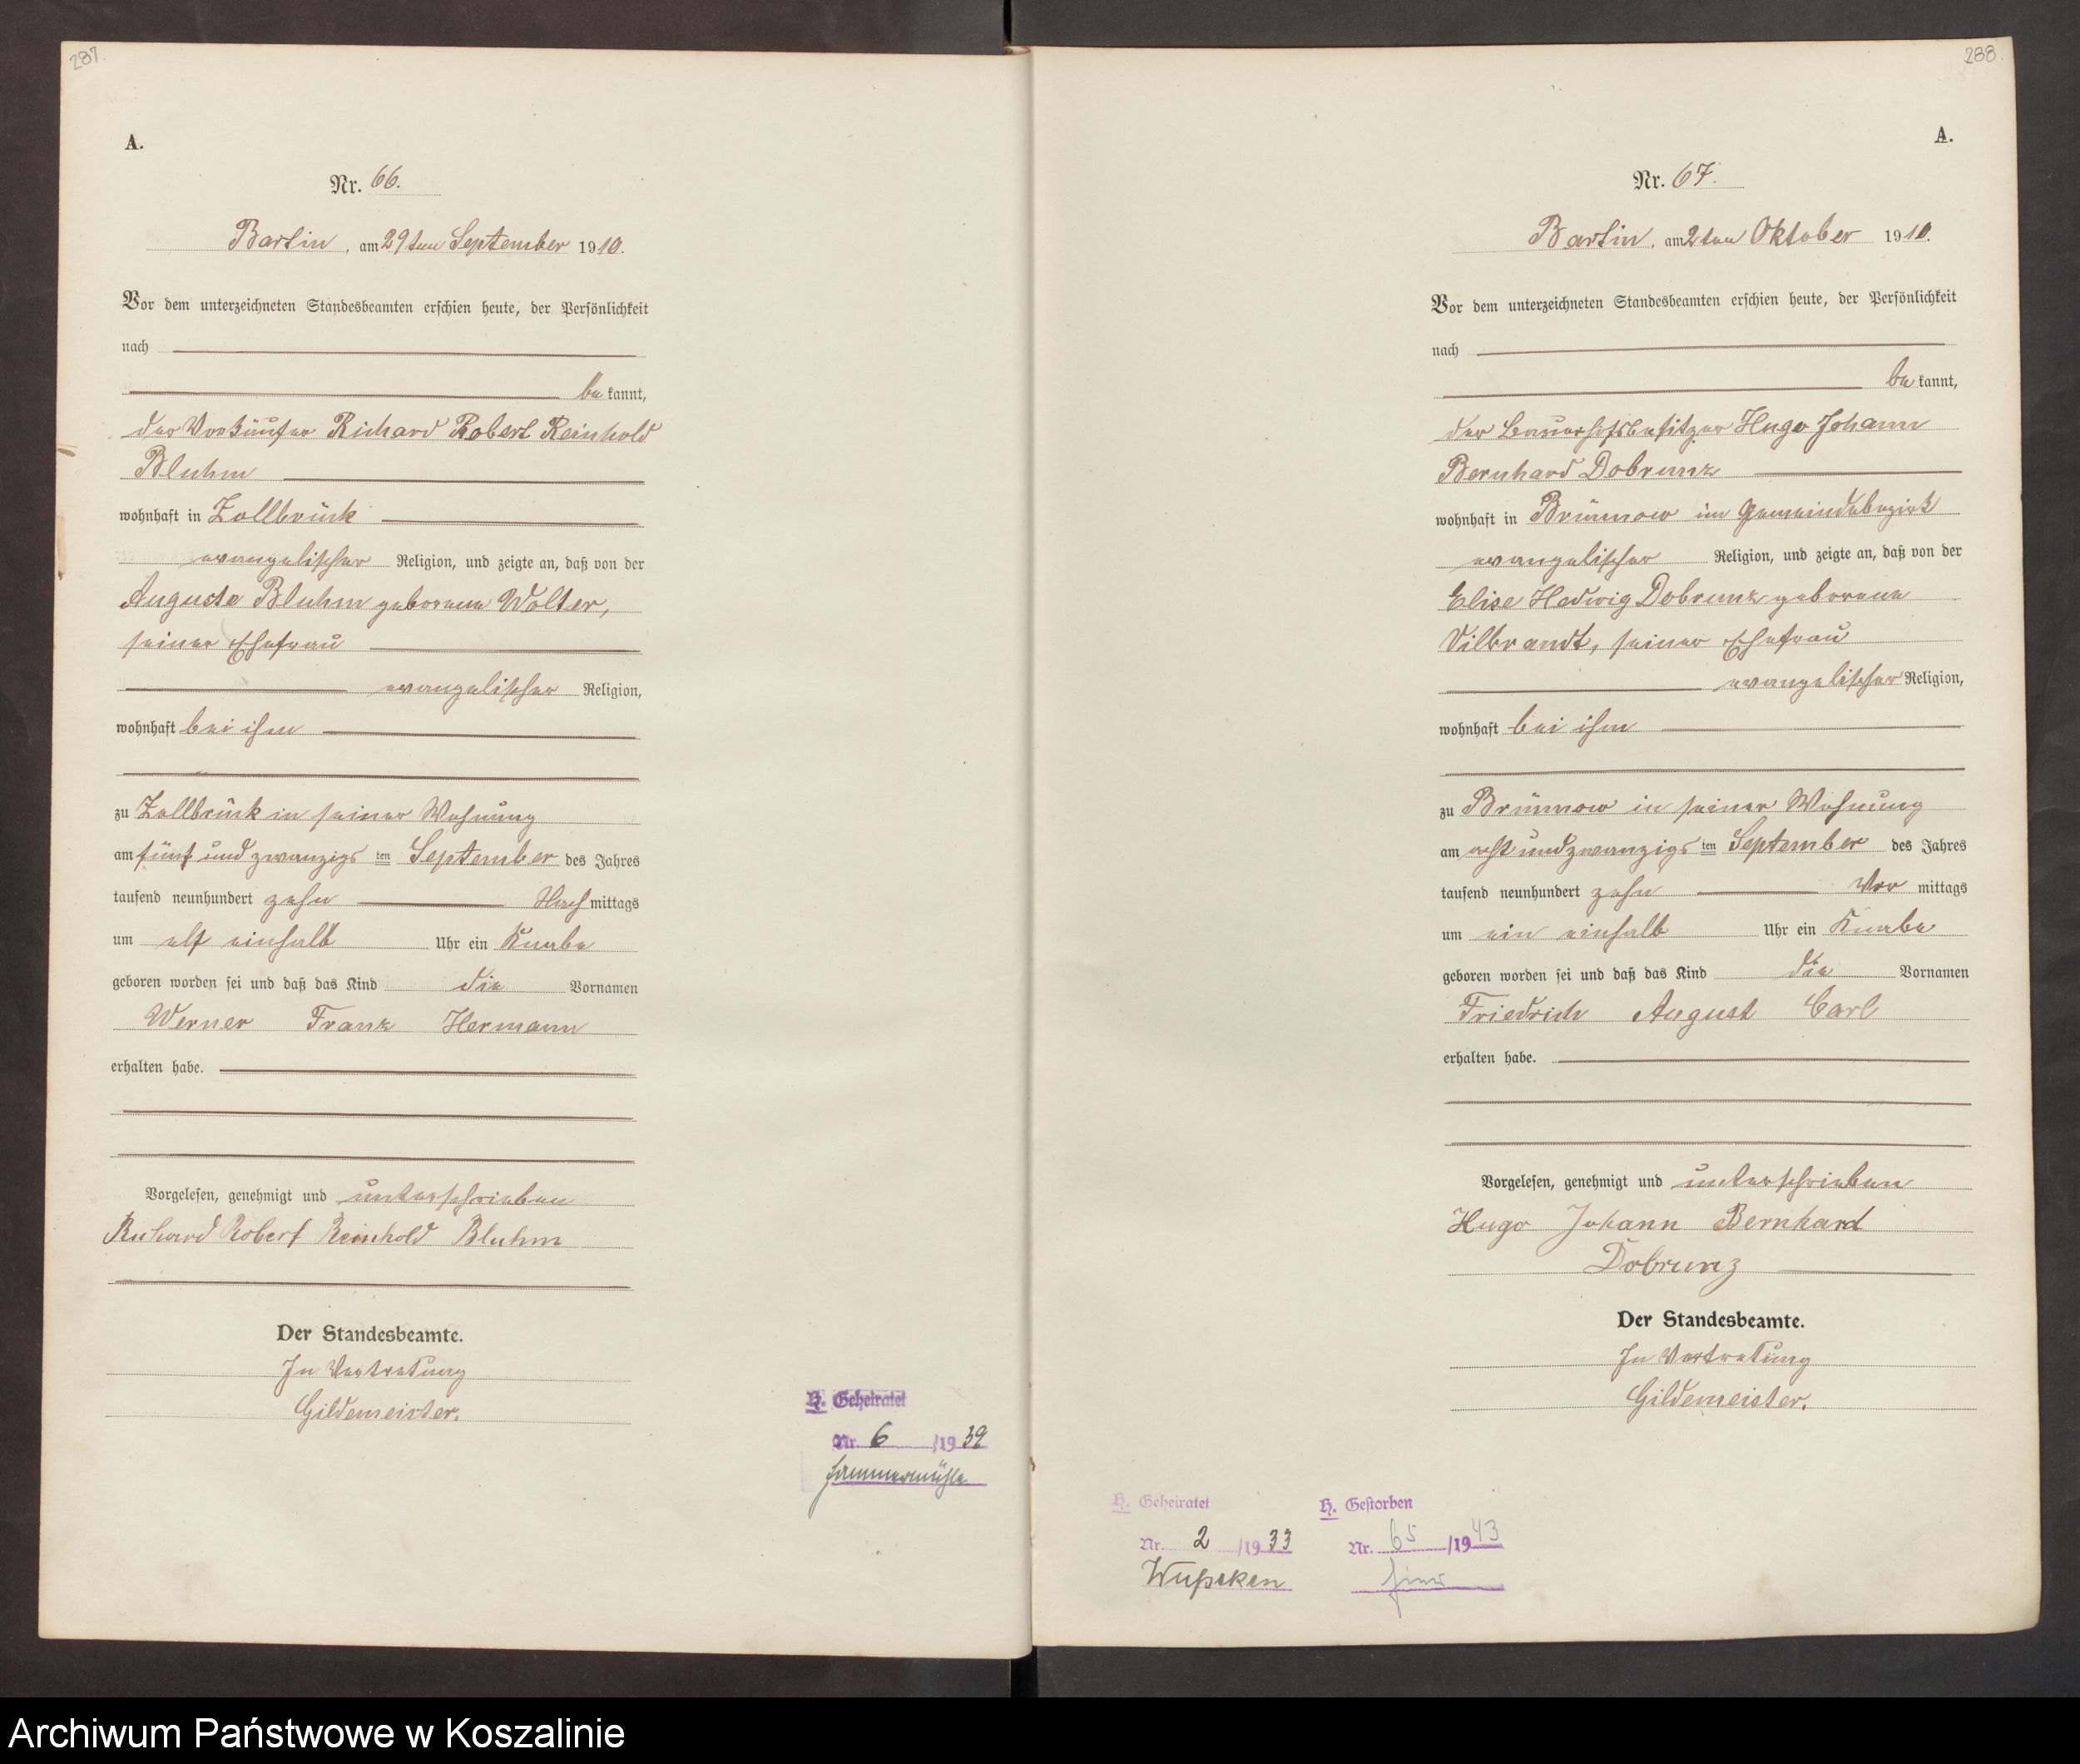 287.
A.
Nr. 66.
Bartin, am 29ten September 1910.
Vor dem unterzeichneten Standesbeamten erschien heute, der Persönlichkeit
nach
bekannt,
der Vorkäufer Richard Robert Reinhold
Bluhm
wohnhaft in Zollbrück
evangelischer Religion, und zeigte an, daß von der
Auguste Bluhm geborene Wolter,
seiner Ehefrau
evangelischer Religion,
wohnhaft bei ihm
zu Zollbrück in seiner Wohnung
am fünfundzwanzigsten September des Jahres
tausend neunhundert zehn Nachmittags
um elf einhalb Uhr ein Knabe
geboren worden sei und daß das Kind die Vornamen
Werner Franz Hermann
erhalten habe.
Vorgelesen, genehmigt und unterschrieben
Richard Robert Reinhold Bluhm
Der Standesbeamte.
In Vertretung
Gildemeister.
H. Geheiratet
Nr. 6 /1939
Hammermühle
288.
A.
Nr. 67.
Bartin, am 2ten Oktober 1910.
Vor dem unterzeichneten Standesbeamten erschien heute, der Persönlichkeit
nach
bekannt,
der Bauerhofsbesitzer Hugo Johann
Bernhard Dobrunz
wohnhaft in Brünnow im Gemeindebezirk
evangelischer Religion, und zeigte an, daß von der
Elise Hedwig Dobrunz geborene
Vilbrandt, seiner Ehefrau
evangelischer Religion,
wohnhaft bei ihm
zu Brünnow in seiner Wohnung
am achtundzwanzigsten September des Jahres
tausend neunhundert zehn Vormittags
um ein einhalb Uhr ein Knabe
geboren worden sei und daß das Kind die Vornamen
Friedrich August Carl
erhalten habe.
Vorgelesen, genehmigt und unterschrieben
Hugo Johann Bernhard
Dobrunz
Der Standesbeamte.
In Vertretung
Gildemeister.
H. Geheiratet
Nr. 2 /1933
Wußeken
H. Gestorben
Nr. 65 /1943
hier
Archiwum Państwowe w Koszalinie